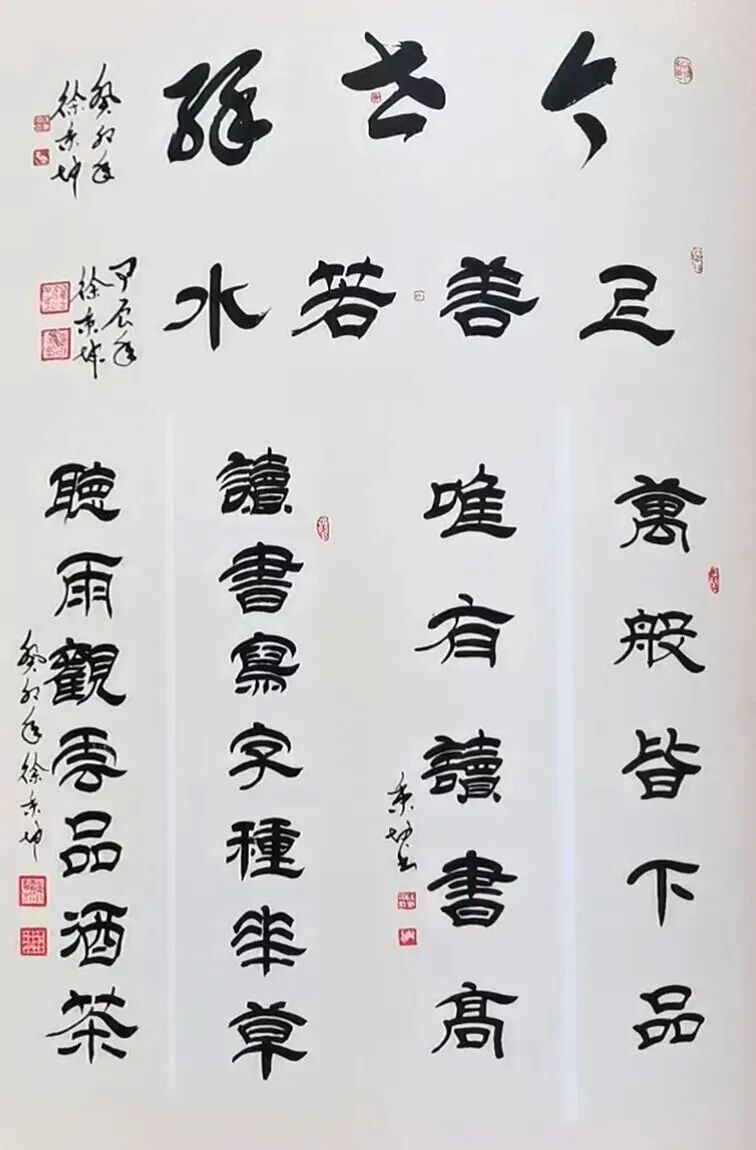 今世緣
癸卯年
徐坤
上善若水
甲辰年
徐坤
萬般皆下品
唯有讀書高
坤书
讀書寫字種花草
聽雨觀雲品酒茶
癸卯年徐坤